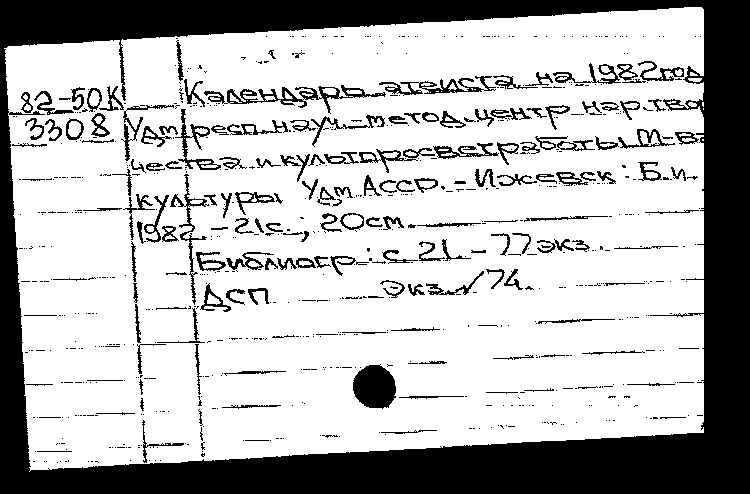 82-50К Календарь атеиста на 1982 год
3308 Удм. респ. науч.-метод. центр нар. твор
чества и культпросветработы М-ва
культуры Удм АССР. - Ижевск : Б.и.
1982. - 21с. ; 20см.
Библиогр : с. 21. - 77 экз.
ДСП экз. √ 74.